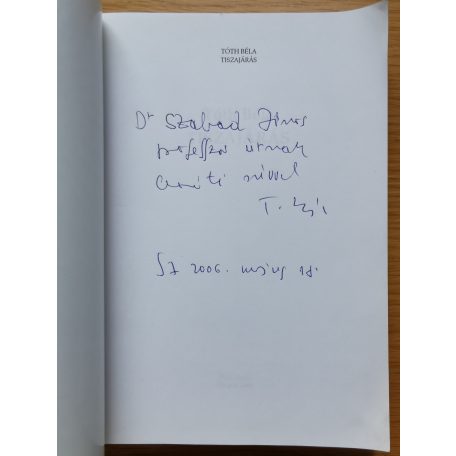 TÓTH BÉLA
TISZAJÁRÁS
Dr Szabad János
professzor úrnak
baráti szívvel
T. Béla
Sz 2006. május 18.